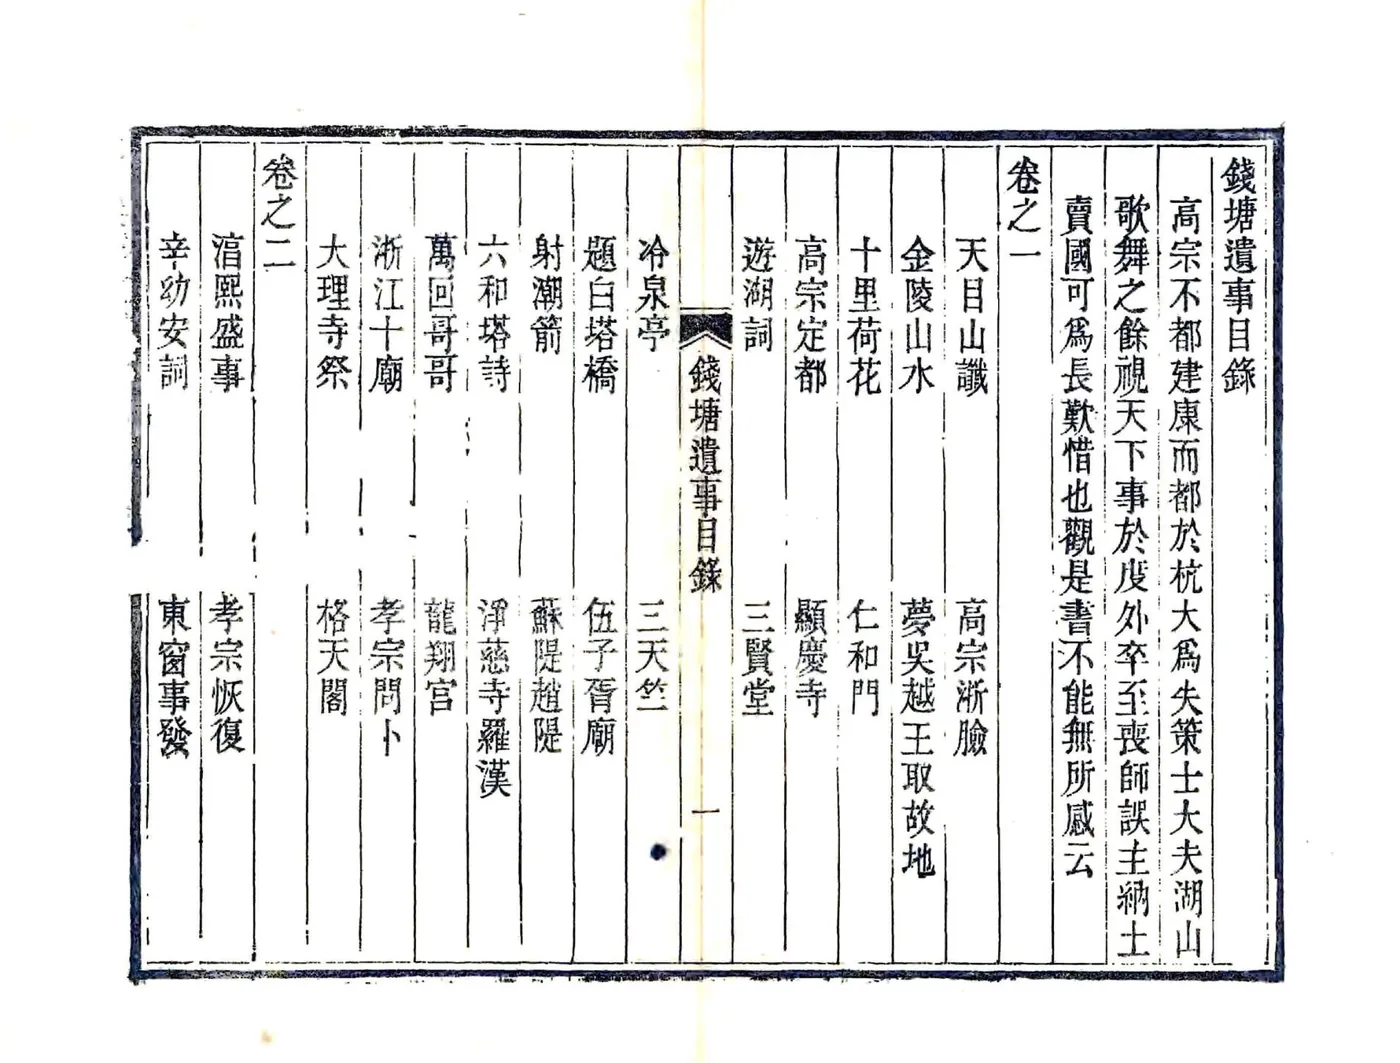 錢塘遺事目錄
高宗不都建康而都於杭大爲失策士大夫湖山
歌舞之餘視天下事於度外卒至喪師誤主納土
賣國可爲長歎惜也觀是書不能無所感云
卷之一
天目山讖　高宗浙臉
金陵山水　夢吳越王取故地
十里荷花　仁和門
高宗定都　顯慶寺
遊湖詞　三賢堂
錢塘遺事目錄　一
冷泉亭　三天竺
題白塔橋　伍子胥廟
射潮箭　蘇隄趙隄
六和塔詩　淨慈寺羅漢
萬回哥哥　龍翔宮
浙江十廟　孝宗問卜
大理寺祭　格天閣
卷之二
淯熙盛事　孝宗恢復
辛幼安詞　東窗事發